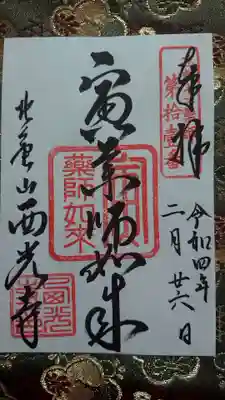 奉拝
第拾壱番
令和四年
二月廿六日
寅薬師如来
薬師如来
西光寺